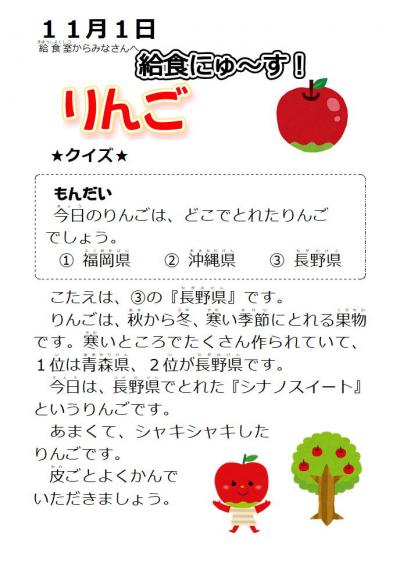 11月1日
給食室からみなさんへ
給食にゅ〜す！
りんご
★クイズ★
もんだい
今日のりんごは、どこでとれたりんご
でしょう。
① 福岡県 ② 沖縄県 ③ 長野県
こたえは、③の『長野県』です。
りんごは、秋から冬、寒い季節にとれる果物
です。寒いところでたくさん作られていて、
１位は青森県、２位が長野県です。
今日は、長野県でとれた『シナノスイート』
というりんごです。
あまくて、シャキシャキした
りんごです。
皮ごとよくかんで
いただきましょう。